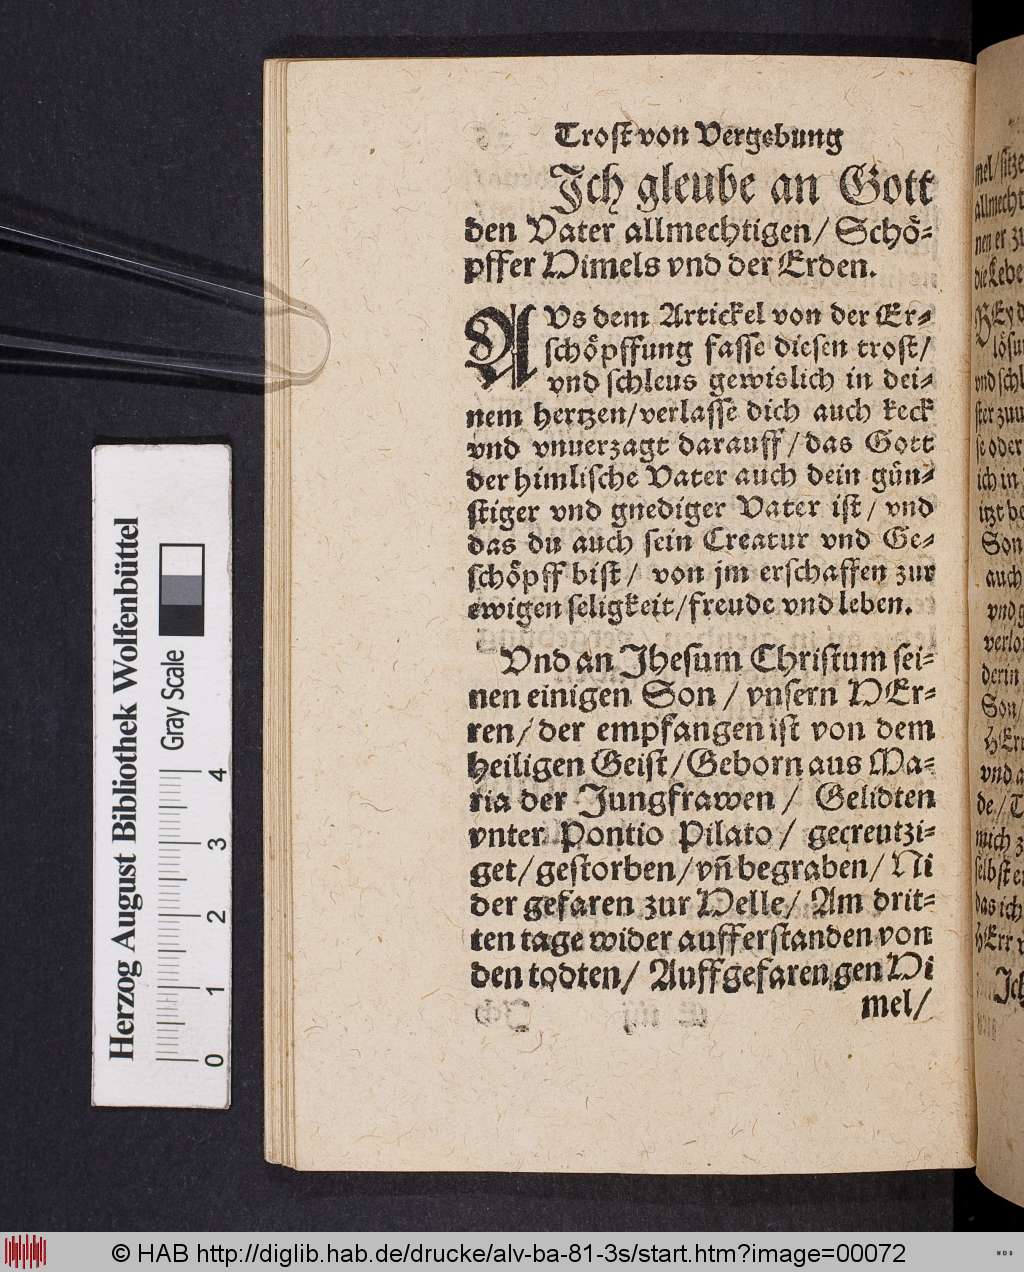 Trost von Vergebung
Ich gleube an Gott
den Vater allmechtigen/ Schö-
pffer Himels vnd der Erden.
AVs dem Artickel von der Er-
schöpffung fasse diesen trost/
vnd schleus gewislich in dei-
nem hertzen/verlasse dich auch keck
vnd vnuerzagt darauff/das Gott
der himlische Vater auch dein gün-
stiger vnd gnediger Vater ist/ vnd
das du auch sein Creatur vnd Ge-
schöpff bist/ von jm erschaffen zur
ewigen seligkeit/freude vnd leben.
Vnd an Jhesum Christum sei-
nen einigen Son / vnsern HEr-
ren/ der empfangen ist von dem
heiligen Geist/Geborn aus Ma-
ria der Jungfrawen / Gelidten
vnter Pontio Pilato/ gecreutzi-
get/gestorben/vñ begraben/ Ni
der gefaren zur Helle/ Am drit-
ten tage wider aufferstanden von
den todten/ Auffgefaren gen Hi
mel/
mel/sitze
allmecht
nen er zu
die Lebe
HEy d
lösun
vnd schl
ster zuu
se oder
ich in
itzt be
Son
auch
vnd g
verlo
derin
Son/
HErr
vnd a
de/ T
mich z
selbst e
das ich
HErr
Ich
Herzog August Bibliothek Wolfenbüttel
Gray Scale
0 1 2 3 4
© HAB http://diglib.hab.de/drucke/alv-ba-81-3s/start.htm?image=00072